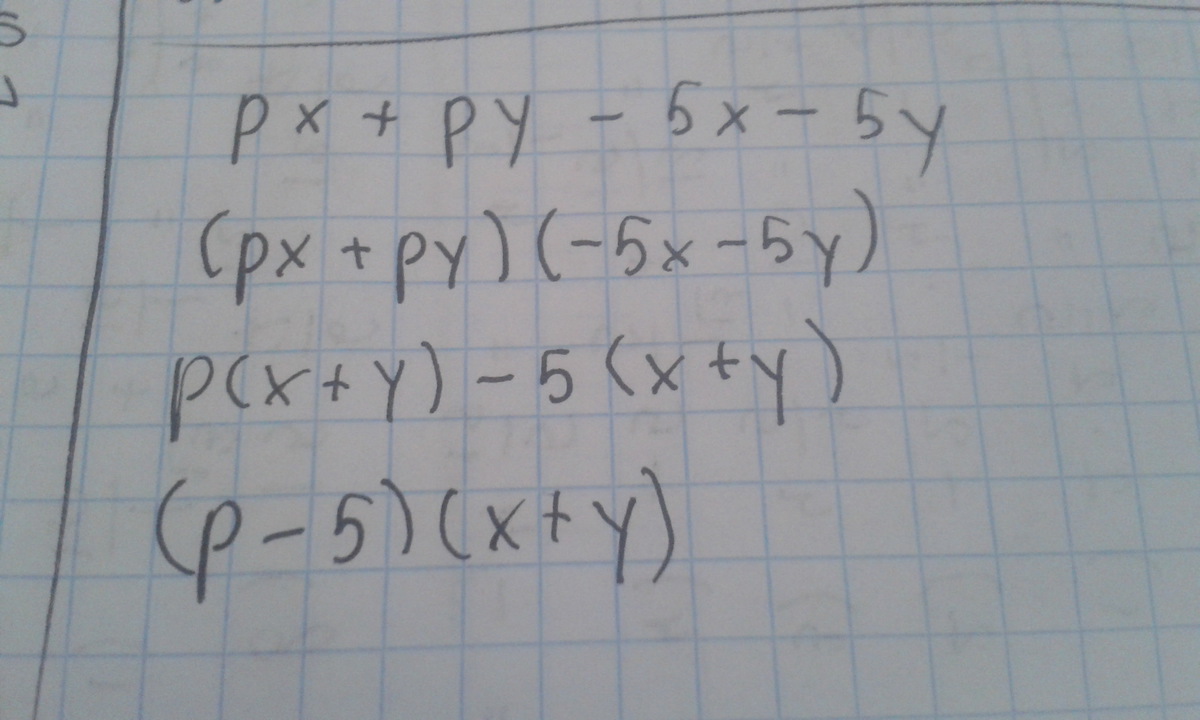 px + py - 5x - 5y
(px + py)(-5x - 5y)
p(x + y) - 5(x + y)
(p - 5)(x + y)